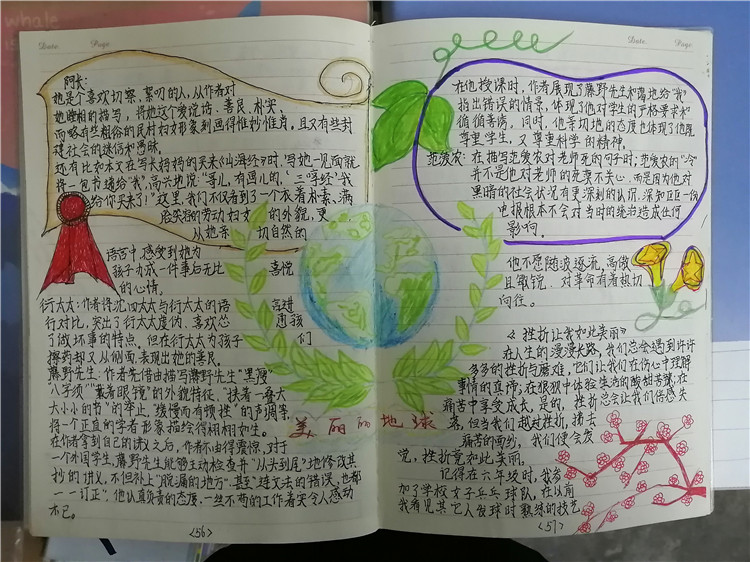 whale
Date. Page.
阿长:
她是个喜欢切察,絮叨的人,从作者对
她睡相的描写,将她这个爱说话、善良、朴实、
而略有些粗俗的农村妇女形象刻画得惟妙惟肖,且又有些封
建社会的迷信和愚昧。
还有比如本文在写长妈妈的买来《山海经》时,写她一见面就
将一包书递给"我",高兴地说:"哥儿,有画儿的,'三哼经'我
给你买来了!"这里,我们不仅看到了一个衣着朴素、满
脸笑容的劳动妇女的外貌,更
从她亲切自然的
语言中,感受到她为
孩子办成一件事后无比喜悦
的心情。
衍太太:作者将沈四太太与衍太太的语言进
行对比,突出了衍太太虚伪、喜欢怂恿孩
了做坏事的特点,但在衍太太为孩子们
擦药却又从侧面表现出她的善良。
藤野先生:作者先借由描写藤野先生"黑瘦"
"八字须""戴着眼镜"的外貌特征、"挟着一叠大
大小小的书"的举止、"缓慢而有顿挫"的声调等
将一个正直的学者形象描绘得栩栩如生。
在作者拿到自己的讲义之后,作者不由得震惊,对于
一个外国学生,藤野先生能够主动检查并"从头到尾"地修改其
抄的讲义,不但补上"脱漏的地方",甚至"连文法的错误,也都
一一订正"。他认真负责的态度,一丝不苟的工作着实令人感动
不已。
<56>
美丽的地球
Date. Page.
在他授课时,作者展现了藤野先生和蔼地给"我"
指出错误的情景,体现了他对学生的严格要求和
循循善诱,同时,他亲切地的态度也体现了他既
尊重学生,又尊重科学的精神。
范爱农:在描写范爱农对老师死的句子时:范爱农的"冷"
并不是他对老师的死漠不关心,而是因为他对
黑暗的社会状况有更深刻的认识,深知区区一份
电报根本不会对当时的统治造成任何
影响。
他不愿随波逐流,高傲
且敏锐、对革命有着积切
向往。
《挫折让我如此美丽》
在人生的漫漫长路,我们总会遇到许许
多多的挫折与磨难,它们让我们在伤心中理解
事情的真谛;在狼狈中体验生活的酸甜苦辣;在
痛苦中享受成长,是的,挫折总会让我们倍感失
落,但当我们越对挫折,拂去
痛苦的面纱,我们便会发
觉,挫折竟如此美丽。
记得在六年级时,我参
加了学校女子乒乓球队,在以前
我看见其它人发球时熟练的技艺
<57>